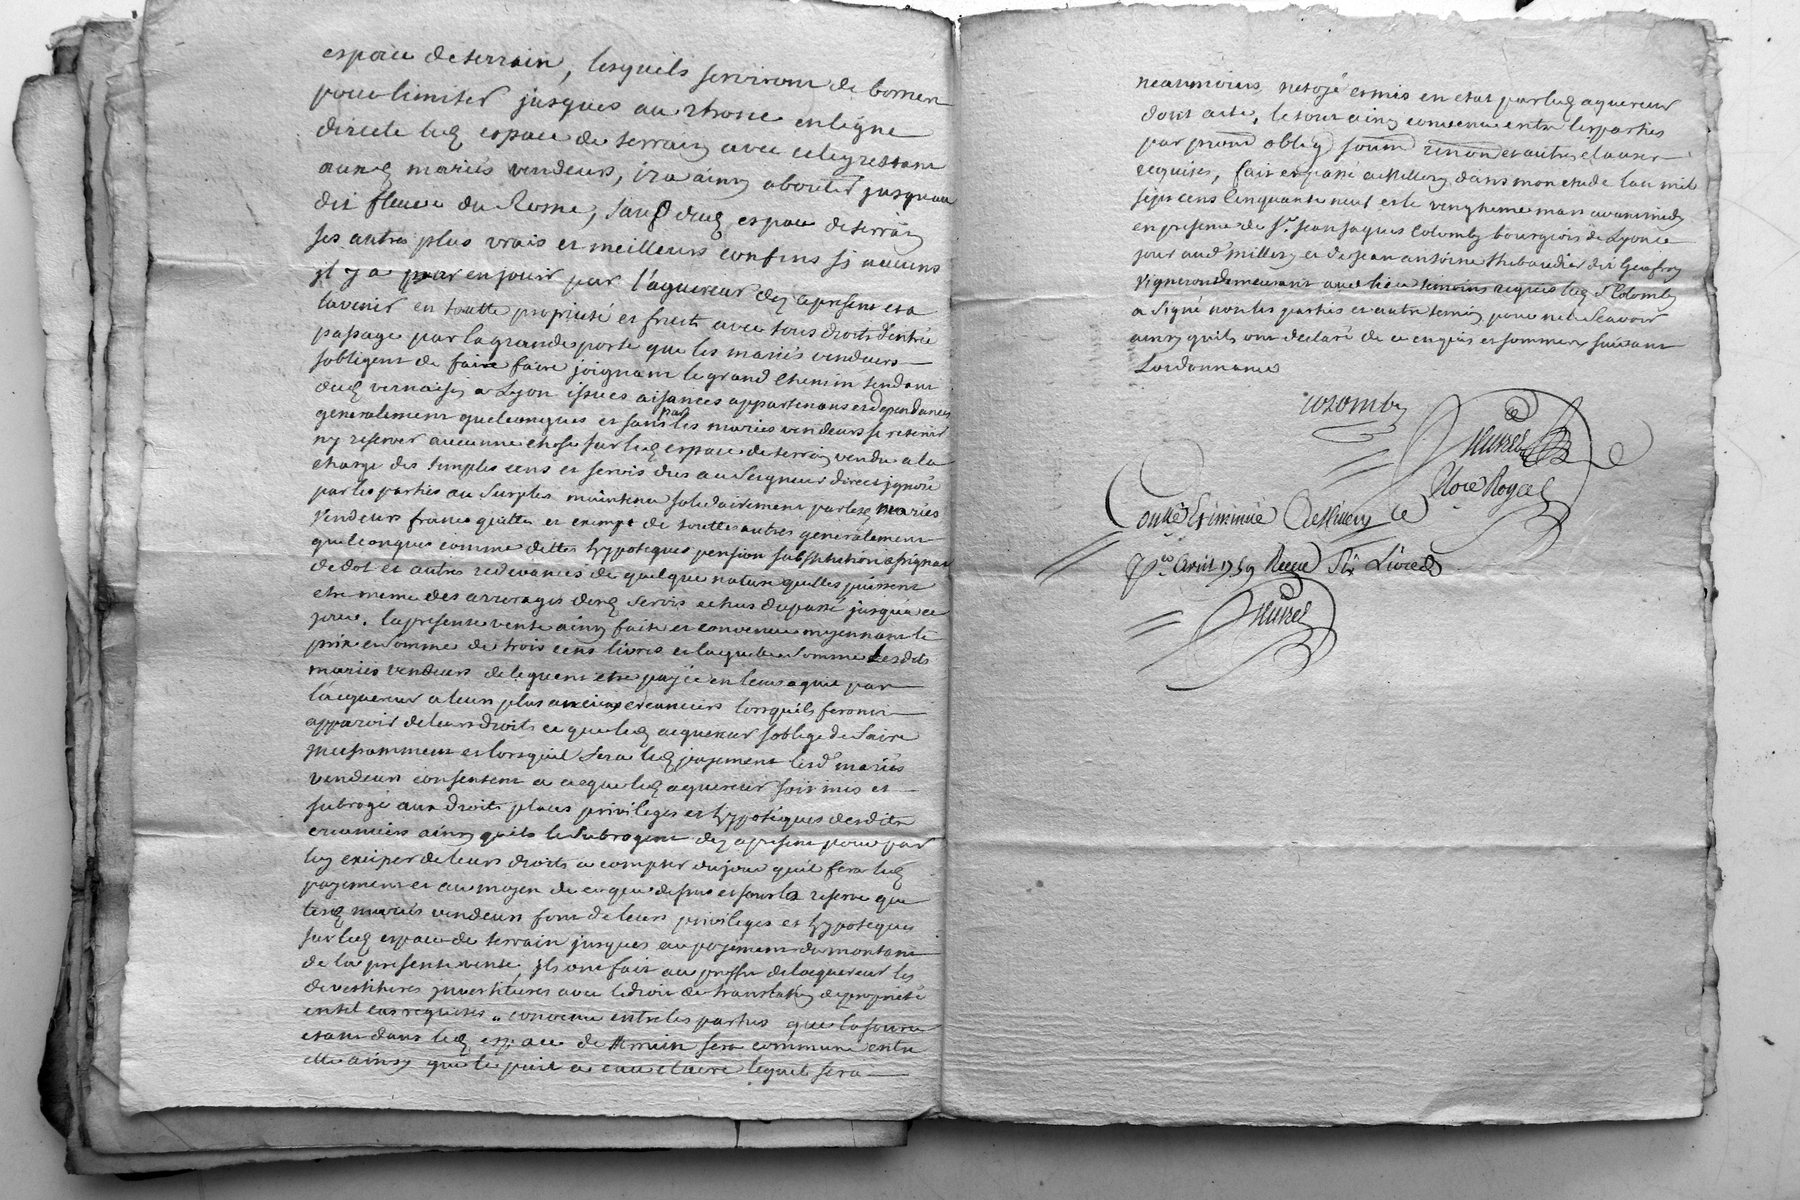 espace de terrain, lesquels serviront de bornes
pour limiter jusques au rhosne en ligne
directe led espace de terrain avec celuy restant
auxd mariés vendeurs, ira ainsy aboutir jusqu'au
dit fleuve du Rosne, sauf dud espace de terrain
ses autres plus vrais et meilleurs confins si aucuns
il y a pour en jouir par l'aquereur dez apresent et a
lavenir en toutte proprieté et fruits avec tous droits d'entrée
passage par la grande porte que les mariés vendeurs
sobligent de faire faire joignant le grand chemin tendant
dud vernaison a Lyon issues aisances appartenances et dependances
generalement quelconques et sans par les mariés vendeurs se retenir
ny reserver aucunne chose sur led espace de terrain vendu a la
charge des simples cens et servis dus au Seigneur direct ignoré
par les parties au surplus maintenu solidairement par lesd mariés
vendeurs franc quitte et exempt de touttes autres generalement
quelconques comme dettes hypoteques pension substitution assignat
de dot et autres redevances de quelque nature quelles puissent
etre meme des arrerages desd servis echus du passé jusqu'a ce
jour. la presente vente ainsy faite et convenue moyennant le
prix et somme de trois cens livres et laquelle somme lesdits
mariés vendeurs deleguent etre payée en leur aquit par
l'acquereur a leurs plus anciens creanciers lorsquils feront
apparoir de leurs droits ce que led acquereur soblige de faire
incessamment et lorsquil fera led payement lesd mariés
vendeurs consentent a ce que led aquereur soit mis et
subrogé aux droits places privileges et hypoteques desdits
creanciers ainsy quils le subrogent dez apresent pour par
luy exciper de leurs droits a compter du jour quil fera led
payement et au moyen de ce que dessus et sous la reserve que
lesd mariés vendeurs font de leurs privileges et hypoteques
sur led espace de terrain jusques au payement du montant
de la presente vente, ils ont fait au proffit de lacquereur les
devestitures investitures avec le droit de translation de proprieté
en tel cas requises. convenu entre les parties que la
etant dans led espace de terrain sera commune entre
elle ainsy que le puit a eau claire lequel sera
neanmoins netoyé et mis en etat par led aquereur
dont acte, le tout ainsy convenu entre les parties
par prom oblig soum renon et autres clauses
requises, fait et passé a Millery dans mon etude lan mil
sept cens cinquante neuf et le vingtieme mars avant midy
en presence de Sr Jean Jaques Colomby bourgeois de Lyon ce
jour aud Millery et de Jean antoine thibaudier dit Geoffroy
vigneron demeurant aud lieu temoins requis led S Colomby
a signé non les parties et autre temoin pour ne le scavoir
ainsy quils ont declaré de ce enquis et sommés suivant
Lordonnance
colomby
Nore Royal
Conllé Et insinué A Millery le
avril 1759 Receu Six Livres